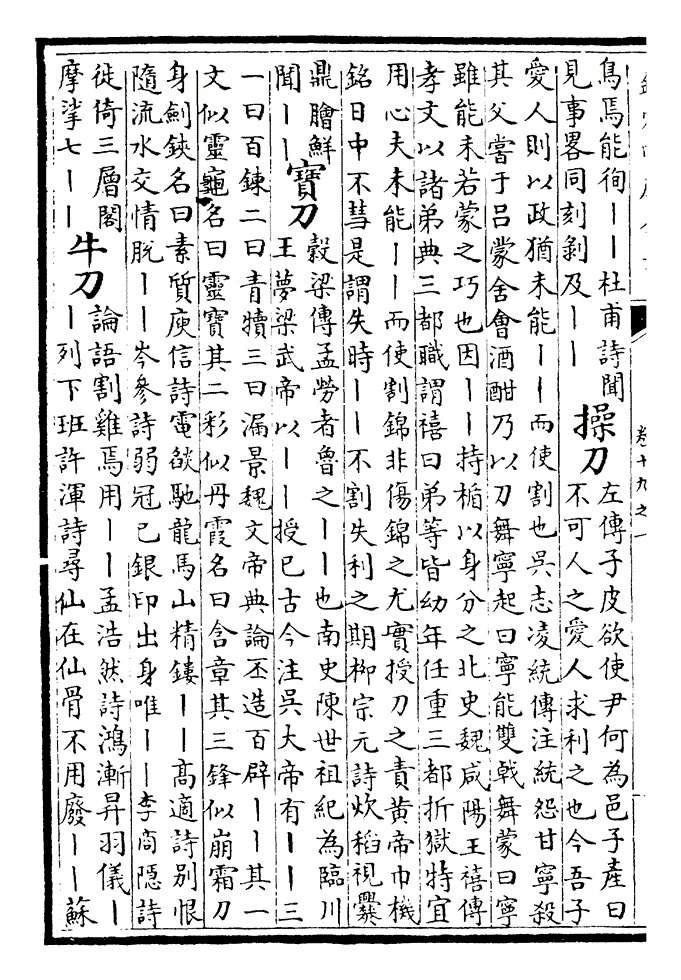 卷十九之一
鳥焉能徇丨丨杜甫詩聞
見事畧同刻剝及丨丨
操刀
左傳子皮欲使尹何為邑子產曰
不可人之愛人求利之也今吾子
愛人則以政猶未能丨丨而使割也吳志凌統傳注統怨甘寧殺
其父嘗于呂蒙舍會酒酣乃以刀舞寧起曰寧能雙戟舞蒙曰寧
雖能未若蒙之巧也因丨丨持楯以身分之北史魏咸陽王禧傳
孝文以諸弟典三都職謂禧曰弟等皆幼年任重三都折獄特宜
用心夫未能丨丨而使割錦非傷錦之尤實授刀之責黃帝巾機
銘日中不彗是謂失時丨丨不割失利之期柳宗元詩炊稻視爨
鼎膾鮮
聞丨丨
寶刀
穀梁傳孟勞者魯之丨丨也南史陳世祖紀為臨川
王夢梁武帝以丨丨授已古今注吳大帝有丨丨三
一曰百鍊二曰青犢三曰漏景魏文帝典論丕造百辟丨丨其一
文似靈龜名曰靈寶其二彩似丹霞名曰含章其三鋒似崩霜刀
身劍鋏名曰素質庾信詩電燄馳龍馬山精鏤丨丨高適詩別恨
隨流水交情脫丨丨岑參詩弱冠已銀印出身唯丨丨李商隱詩
徙倚三層閣
摩挲七丨丨
牛刀
論語割雞焉用丨丨孟浩然詩鴻漸昇羽儀丨
丨列下班許渾詩尋仙在仙骨不用廢丨丨蘇